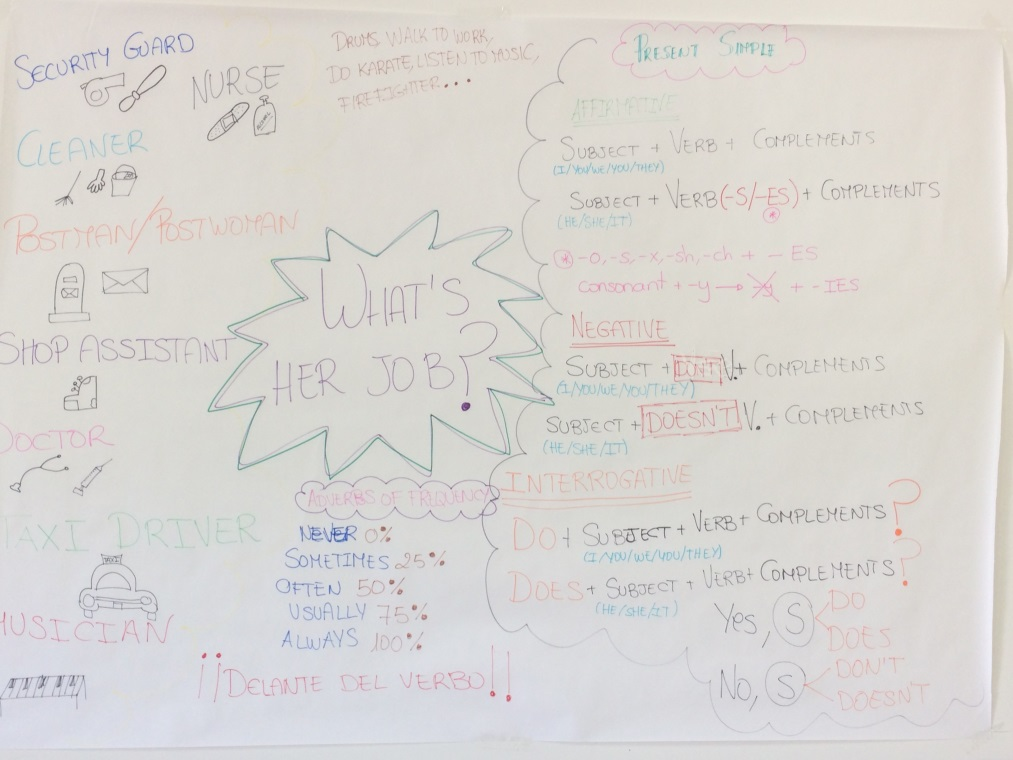 SECURITY GUARD
NURSE
ALCOHOL
CLEANER
POSTMAN/POSTWOMAN
SHOP ASSISTANT
DOCTOR
TAXI DRIVER
TAXI
MUSICIAN
DRUMS WALK TO WORK,
DO KARATE, LISTEN TO MUSIC,
FIREFIGHTER...
WHAT'S
HER JOB?
ADVERBS OF FREQUENCY
NEVER 0%
SOMETIMES 25%
OFTEN 50%
USUALLY 75%
ALWAYS 100%
¡¡DELANTE DEL VERBO!!
PRESENT SIMPLE
AFFIRMATIVE
SUBJECT + VERB + COMPLEMENTS
(I/YOU/WE/YOU/THEY)
SUBJECT + VERB(-S/-ES) + COMPLEMENTS
(HE/SHE/IT) *
* -o,-s,-x,-sh,-ch + - ES
consonant + -y → y + -IES
NEGATIVE
SUBJECT + DON'T V. + COMPLEMENTS
(I/YOU/WE/YOU/THEY)
SUBJECT + DOESN'T V. + COMPLEMENTS
(HE/SHE/IT)
INTERROGATIVE
DO + SUBJECT + VERB + COMPLEMENTS?
(I/YOU/WE/YOU/THEY)
DOES + SUBJECT + VERB + COMPLEMENTS?
(HE/SHE/IT)
Yes, S DO
DOES
No, S DON'T
DOESN'T